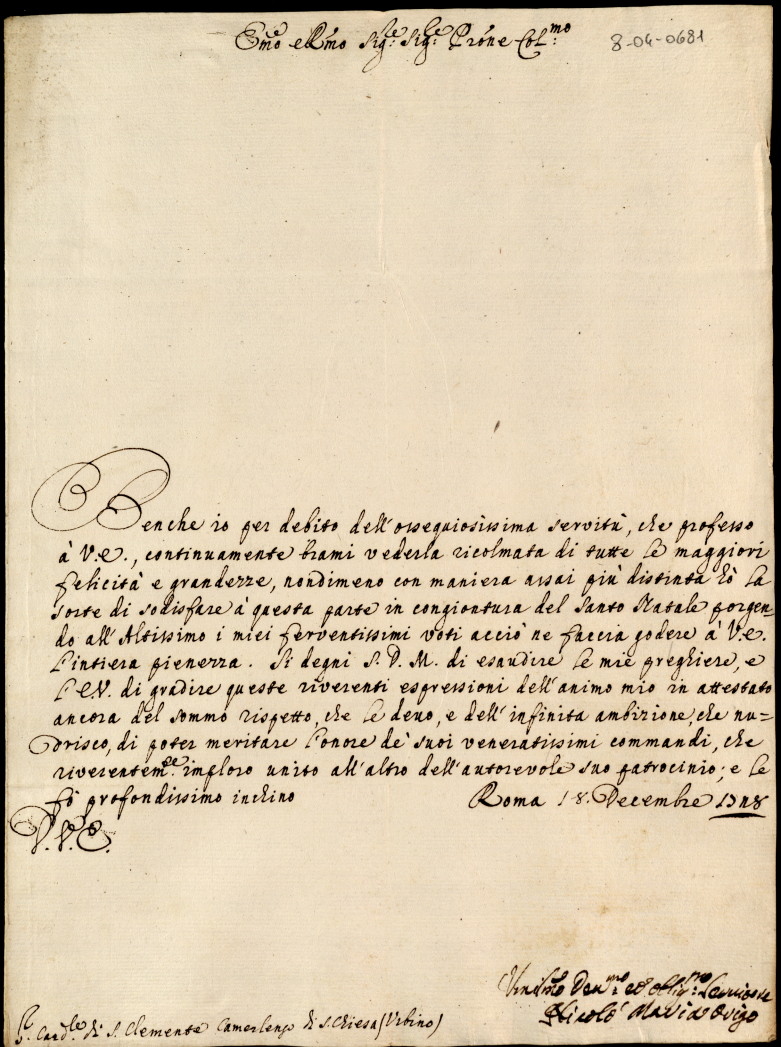 Emo e Rmo Sigre Sigre Prone Colmo
8-04-0681
Benche io per debito dell'ossequiosissima servitù, che professo
à V.E., continuamente brami vederla ricolmata di tutte le maggiori
felicità e grandezze, nondimeno con maniera assai più distinta hò la
sorte di sodisfare à questa parte in congiontura del Santo Natale porgen-
do all'Altissimo i miei ferventissimi voti acciò ne faccia godere à V.E.
l'intiera pienezza. Si degni S.D.M. di esaudire le mie preghiere, e
l'E.V. di gradire queste riverenti espressioni dell'animo mio in attestato
ancora del sommo rispetto, che le devo, e dell'infinita ambizione, che nu=
drisco, di poter meritare l'onore de' suoi veneratissimi commandi, che
riverentemte imploro unito all'altro dell'autorevole suo patrocinio; e le
fò profondissimo inchino Roma 18. Decembre
V.V.E.
Umilmo Devmo ed Obligmo Servitore
Nicolò Maria
Sr Cardle di S. Clemente Camerlengo di S. Chiesa (Urbino)